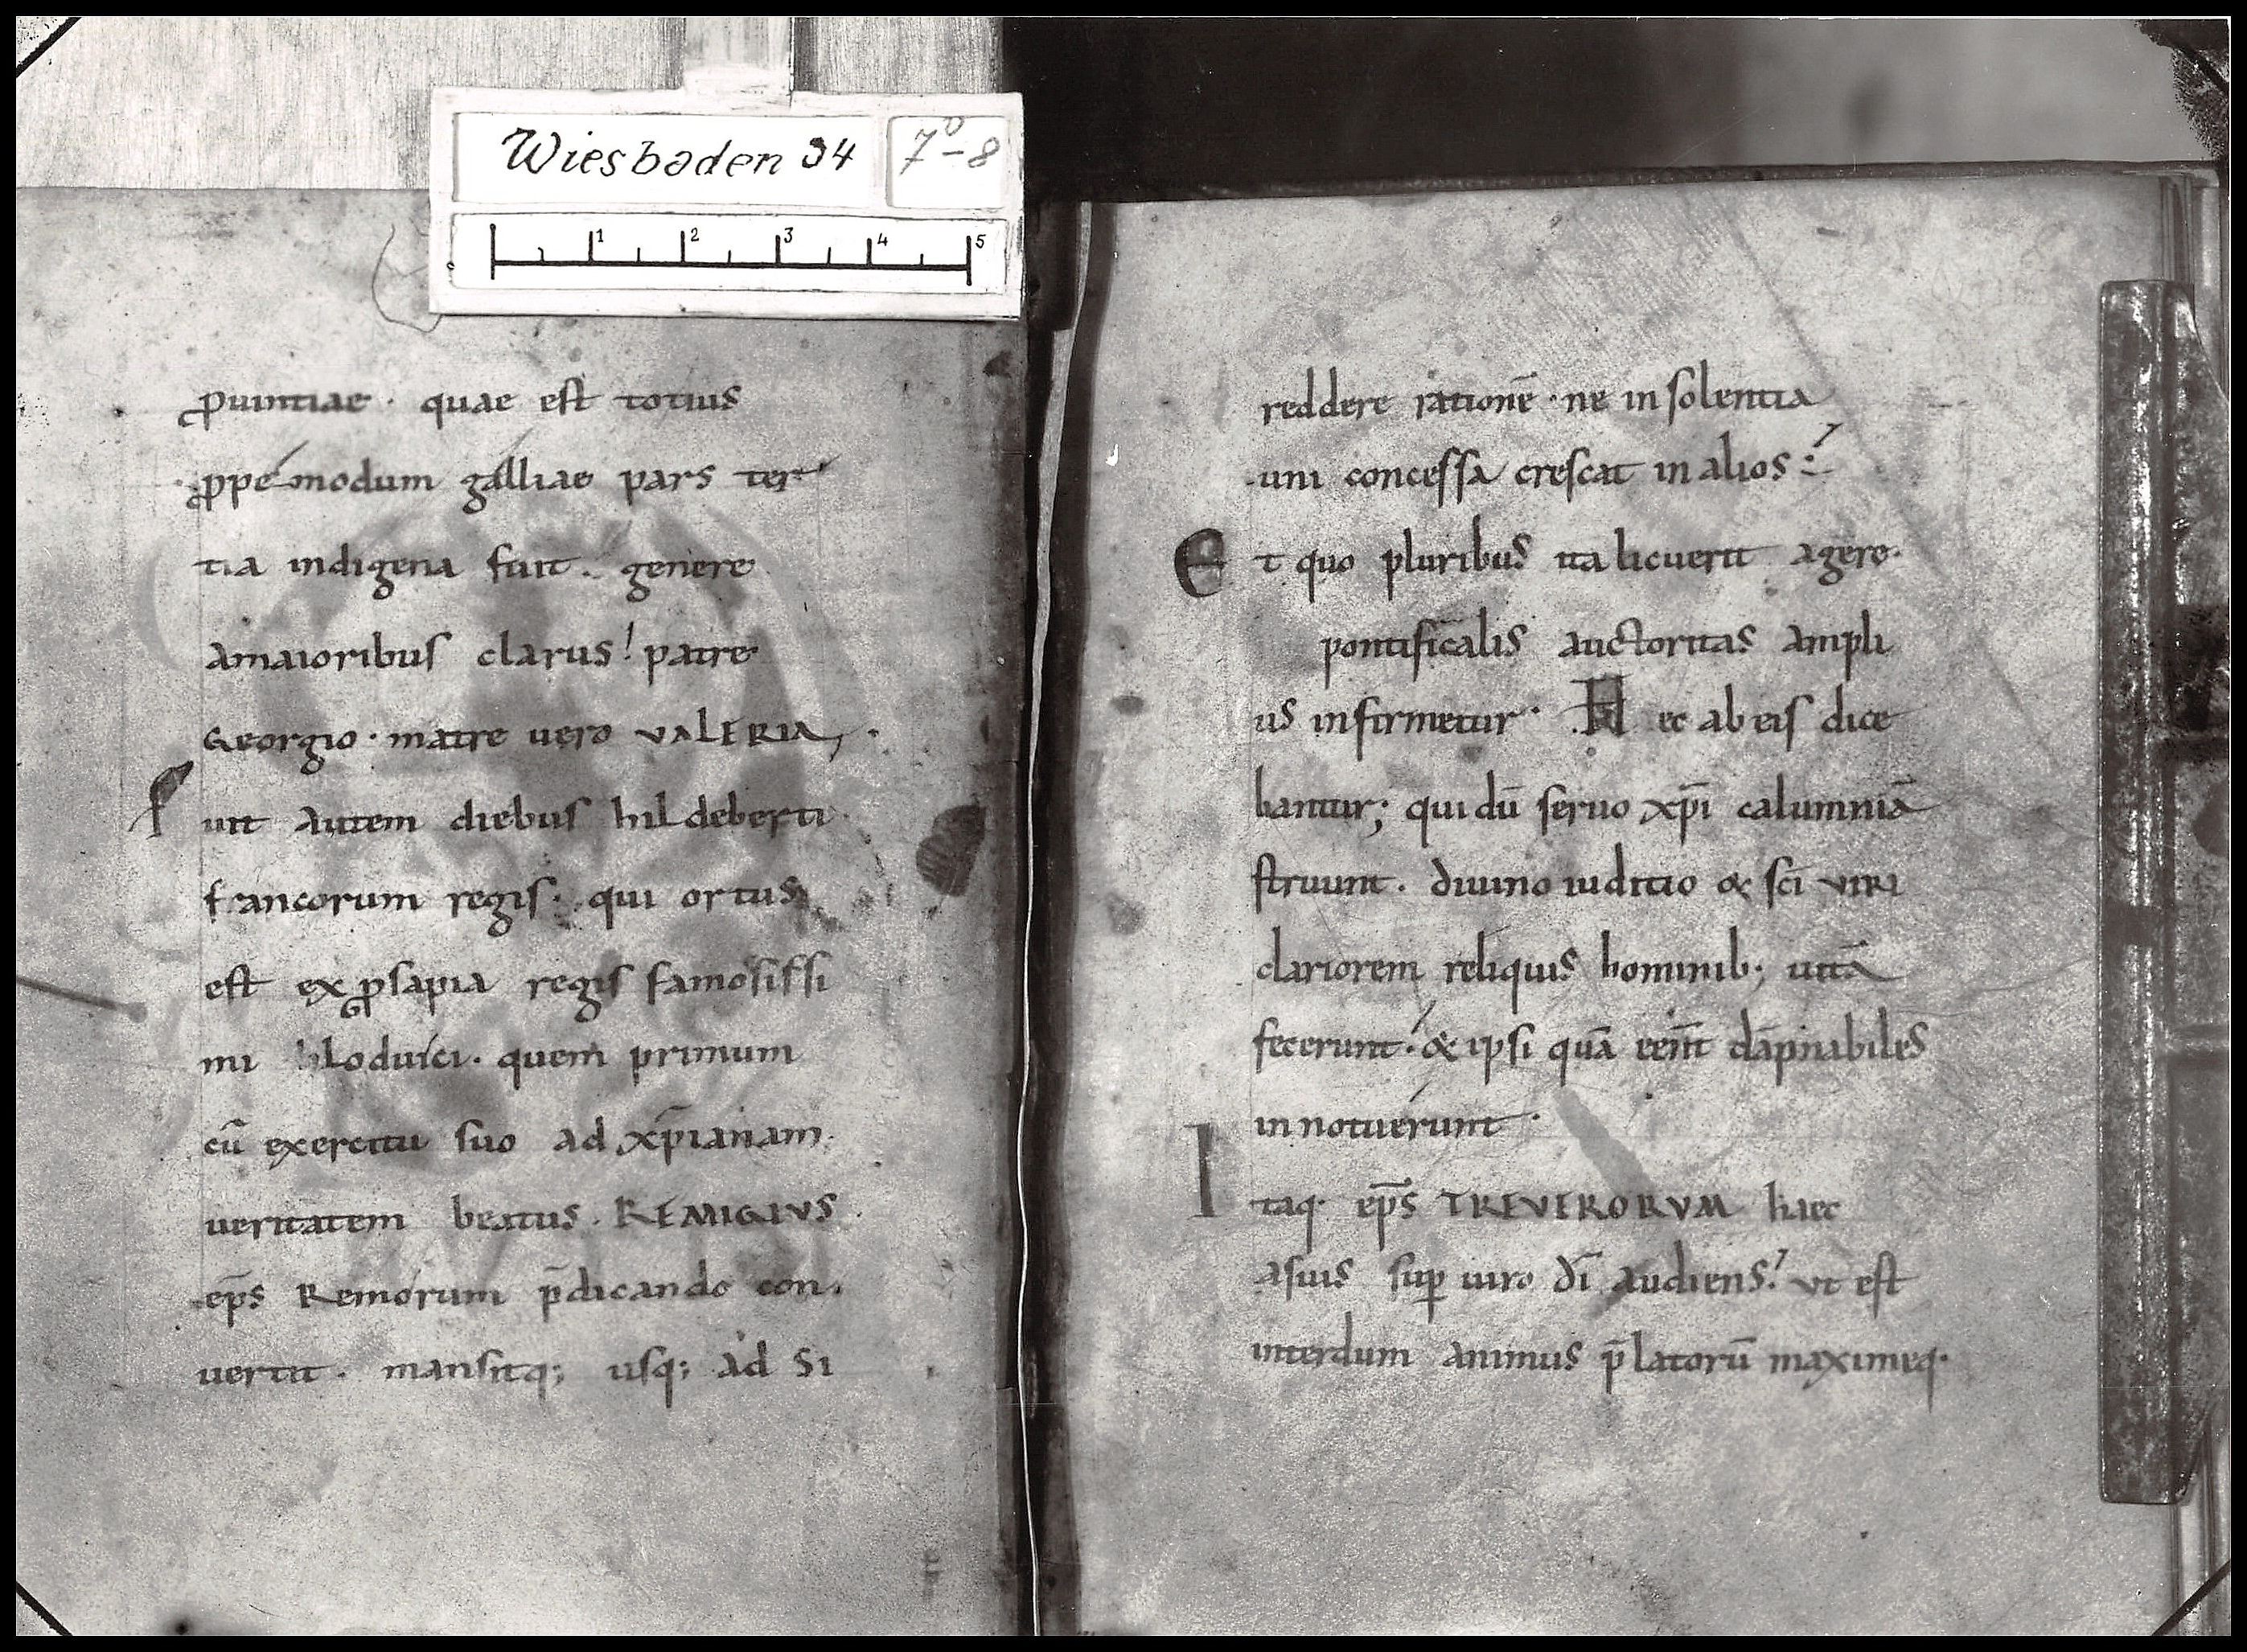 Wiesbaden 34 7v-8
1 2 3 4 5
ꝓuintiae · quae est totius
ꝓpemodum galliae pars ter
tia indigena fuit . genere
amaioribus clarus! patre
Georgio · matre uero VALERIA, .
Fuit autem diebus hildeberti
francorum regis · qui ortus
est ex ꝓsapia regis famosissi
mi hloduici · quem primum
cū exercitu suo ad xp̄ianam
ueritatem beatus . REMIGIVS
ep̄s Remorum p̄dicando con
uertit . mansitq; usq; ad Si
reddere rationē · ne insolentia
uni concessa crescat in alios :
Et quo pluribus ita licuerit agere·
pontificalis auctoritas ampli
us infirmetur · Hec ab eis dice
bantur; qui dū seruo xp̄i calumniā
struunt . diuino iuditio & sc̄i viri
clariorem reliquis hominib; uitā
fecerunt · & ipsi quā eēnt dāpnabiles
innotuerunt ·
Itaq· ep̄s TREVERORVM haec
asuis suꝑ uiro dī audiens! vt est
interdum animus p̄latorū maximeq·